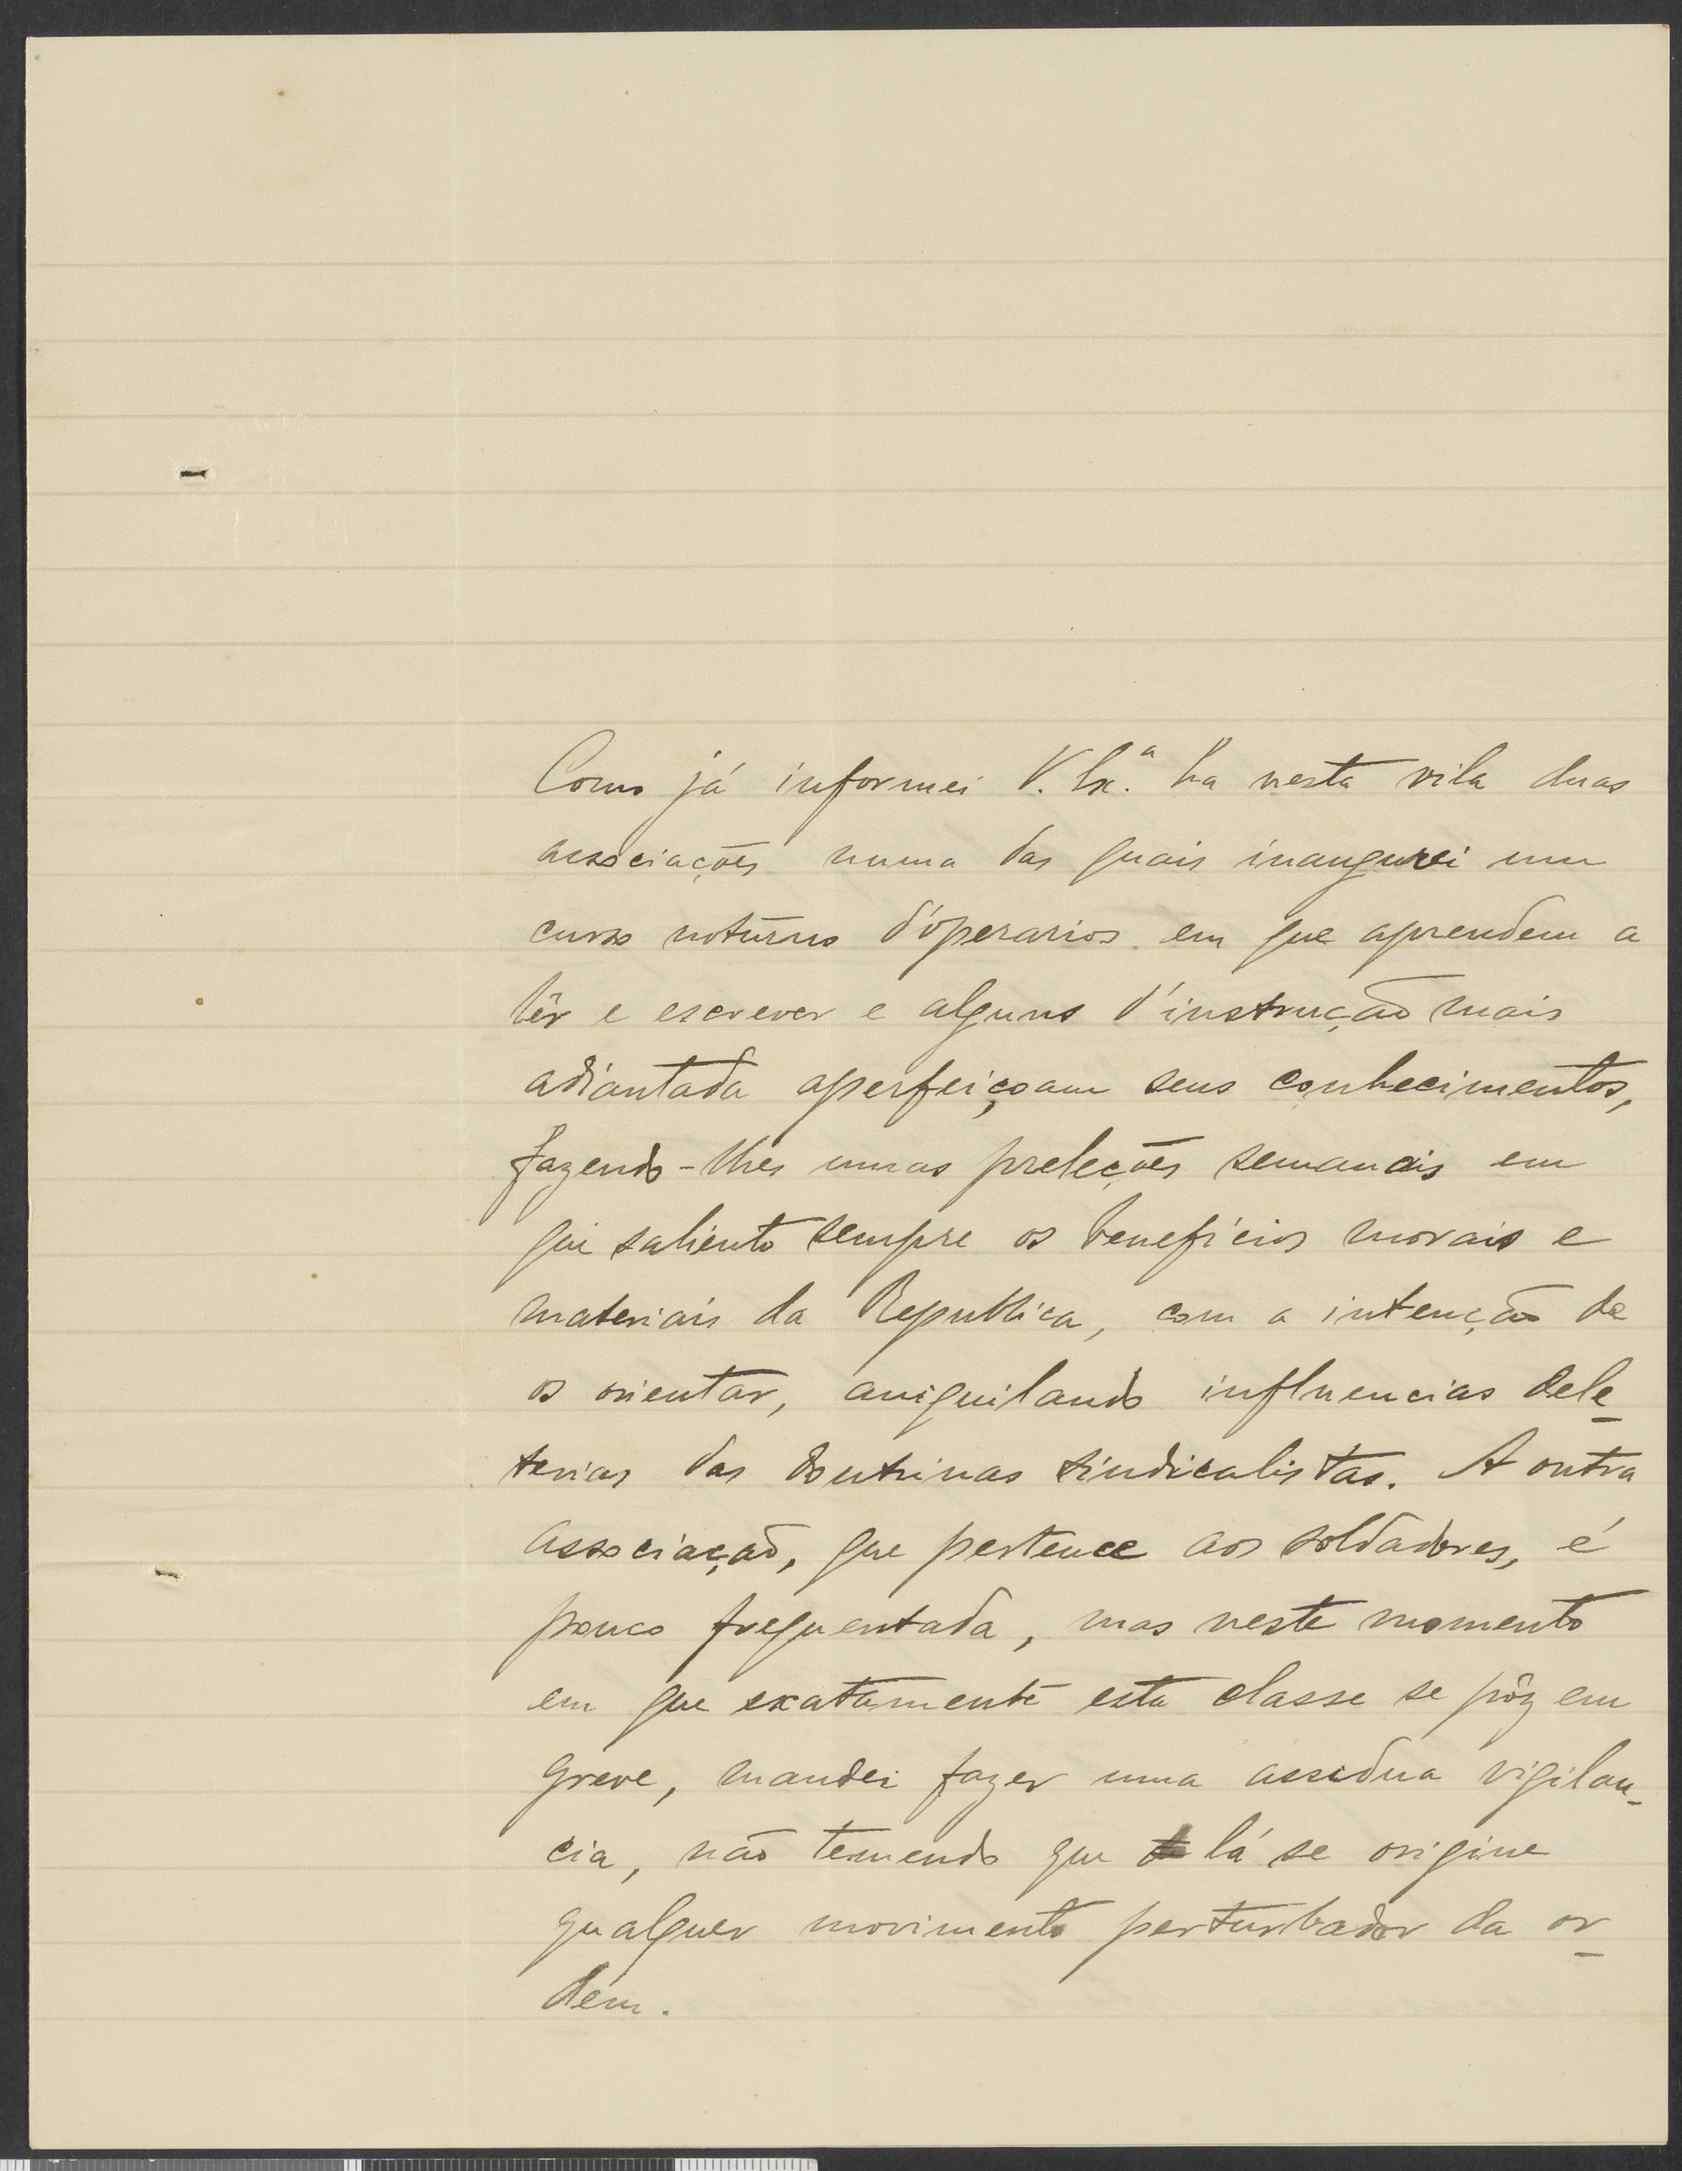 Como já informei V. Ex.ª ha nesta vila duas
associações numa das quais inaugurei um
curso noturno d'operarios em que aprendem a
lêr e escrever e alguns d'instrução mais
adiantada aperfeiçoam seus conhecimentos,
fazendo-lhes umas preleções semanais em
que saliento sempre os beneficios morais e
materiais da Republica, com a intenção de
os orientar, aniquilando influencias dele-
terias das doutrinas sindicalistas. A outra
associação, que pertence aos soldadores, é
pouco frequentada, mas neste momento
em que exatamente esta classe se pôz em
greve, mandei fazer uma assidua vigilan-
cia, não temendo que lá se origine
qualquer movimento perturbador da or-
dem.